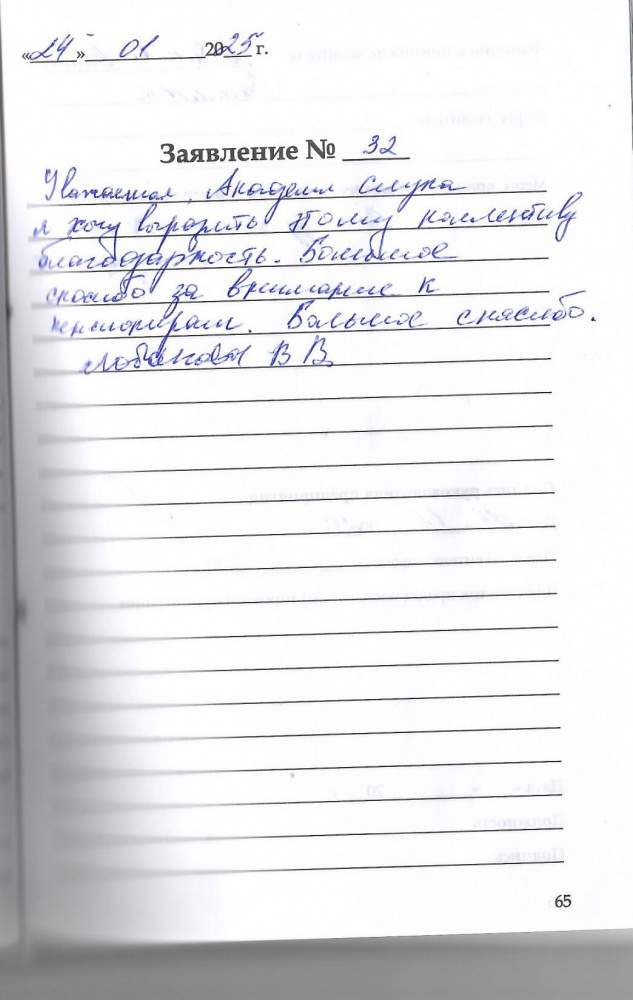 «24» 01 2025 г.
Заявление № 32
Уважаемая, Академия слуха
я хочу выразить этому коллективу
благодарность. Большое
спасибо за внимание к
пенсионерам. Большое спасибо.
Лобанова В В.
65